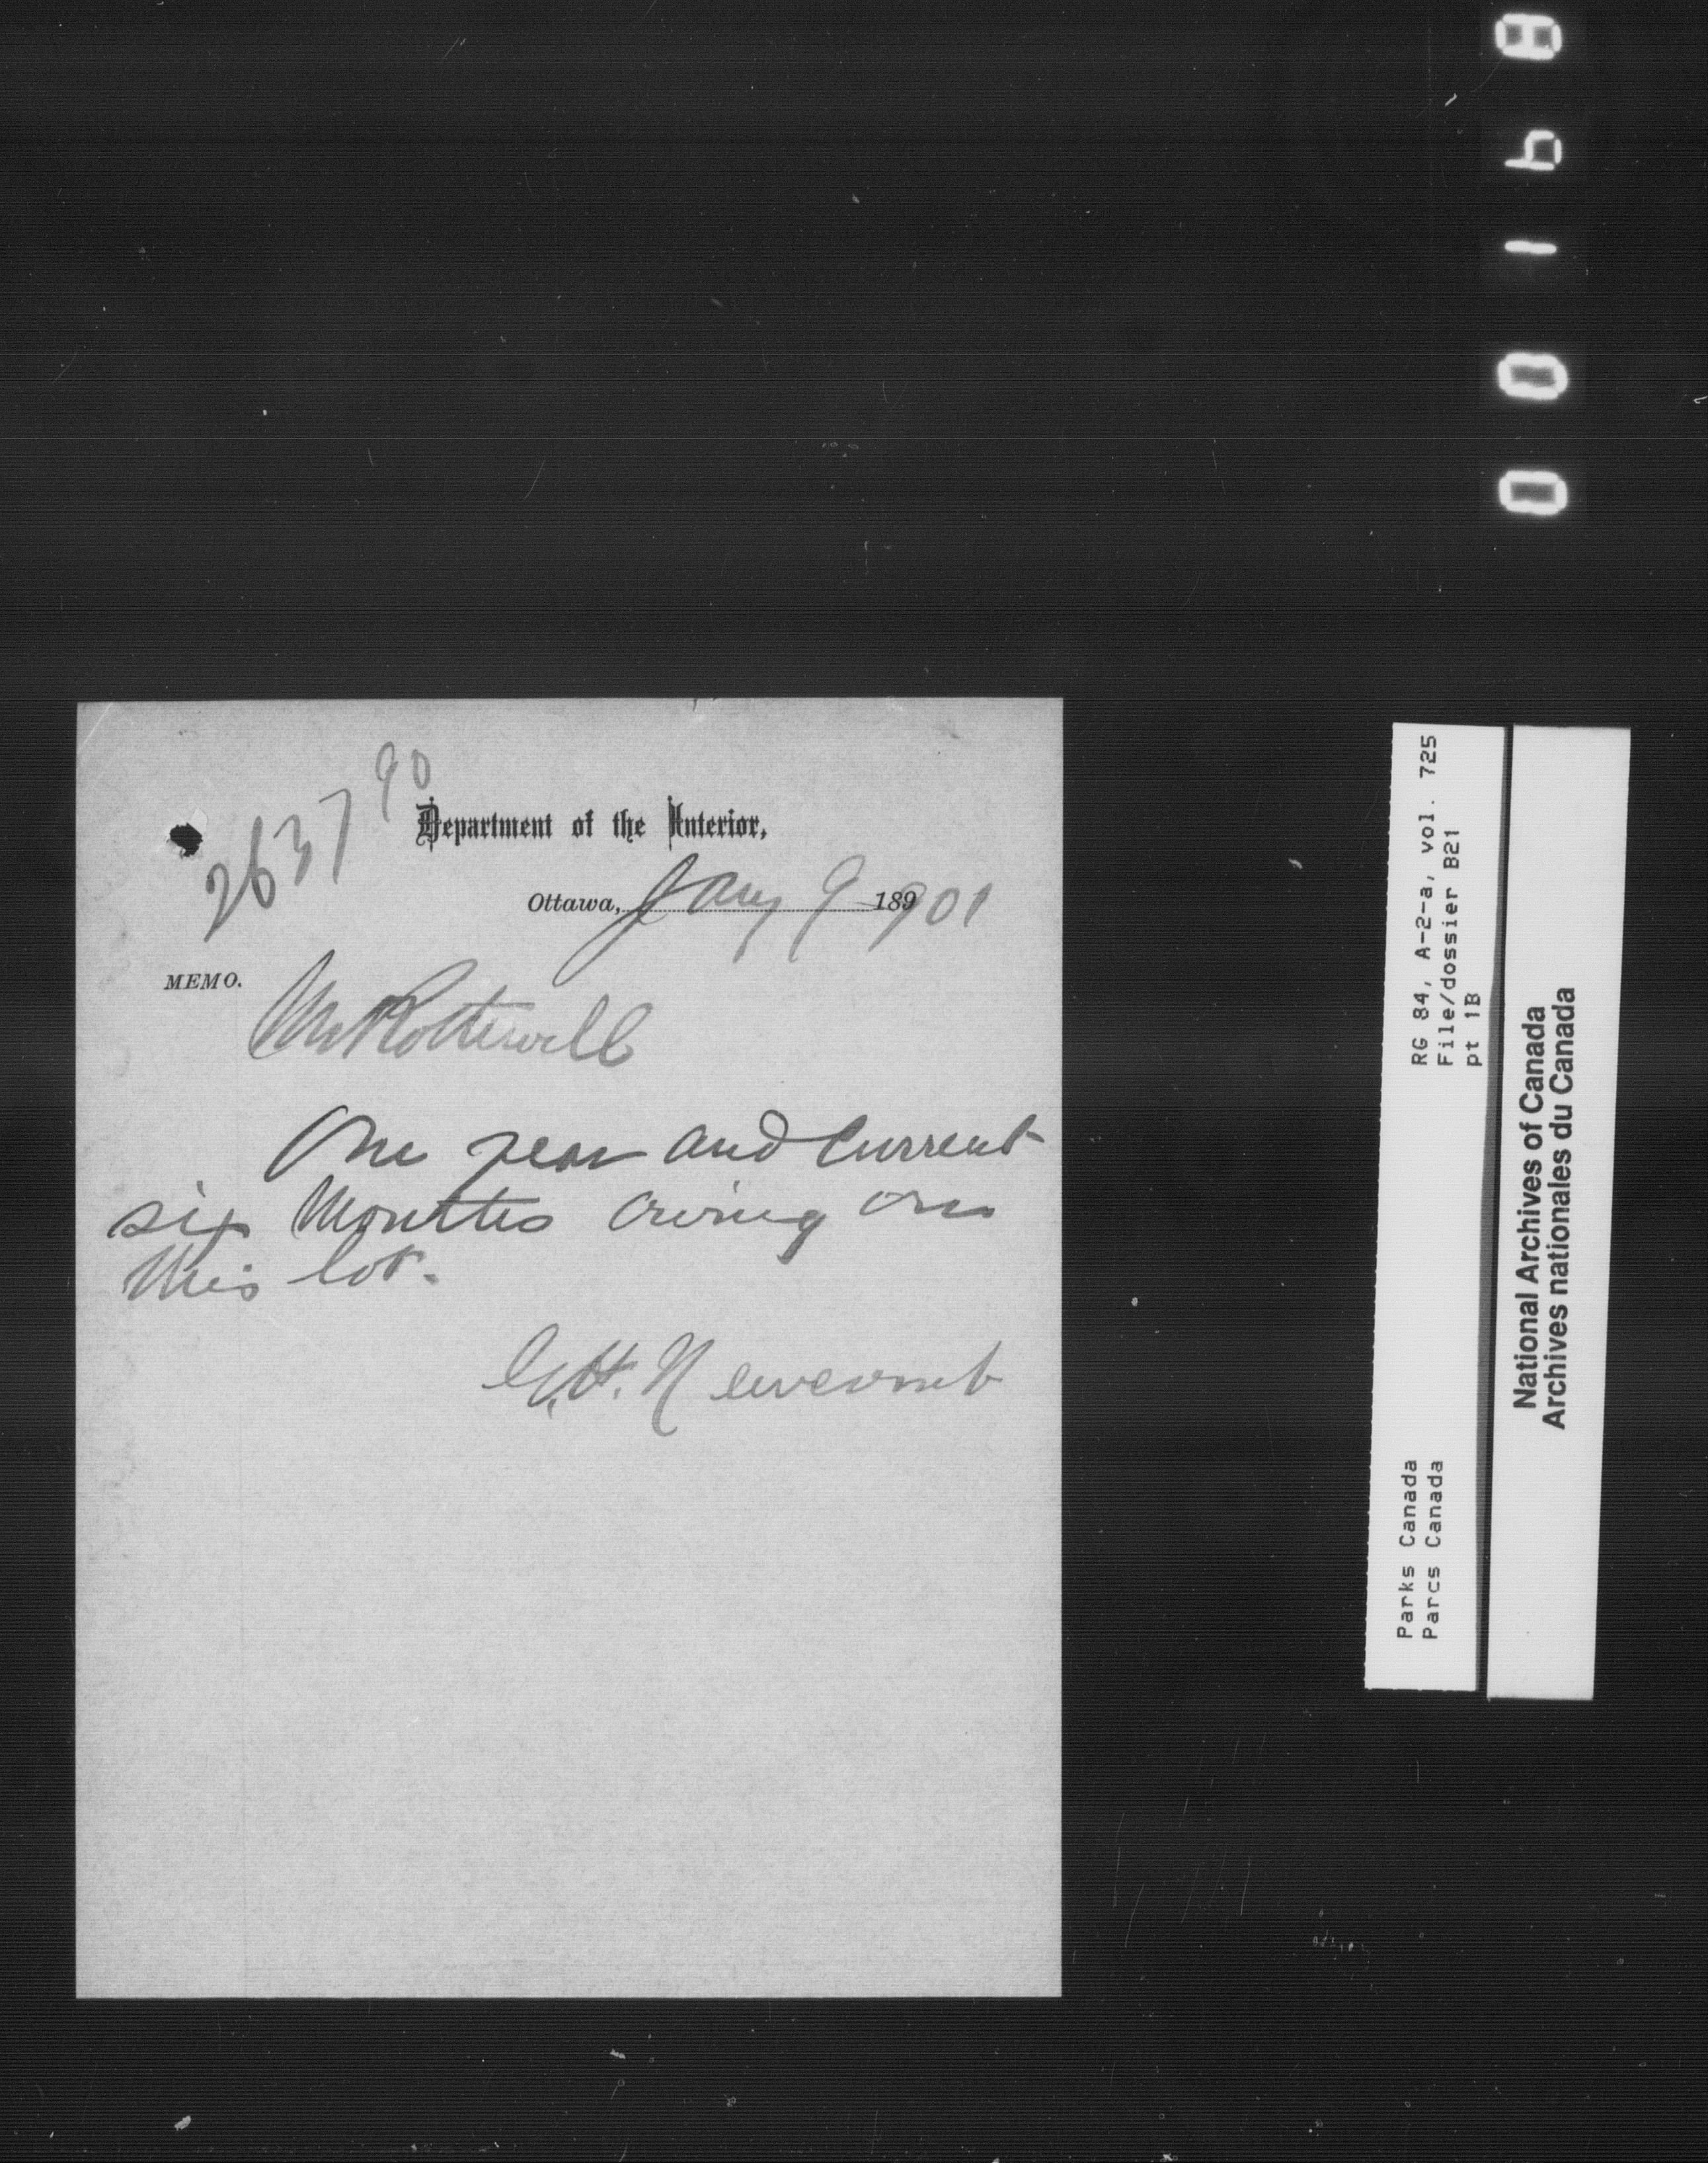 263790
Department of the Interior,
Ottawa, Jany 9 1901
MEMO.
Mr Rothewell
One year and current
six months owing on
this lot.
G.H. Newcomb
RG 84, A-2-a, vol. 725
File/dossier B21
pt 1B
Parks Canada
Parcs Canada
National Archives of Canada
Archives nationales du Canada